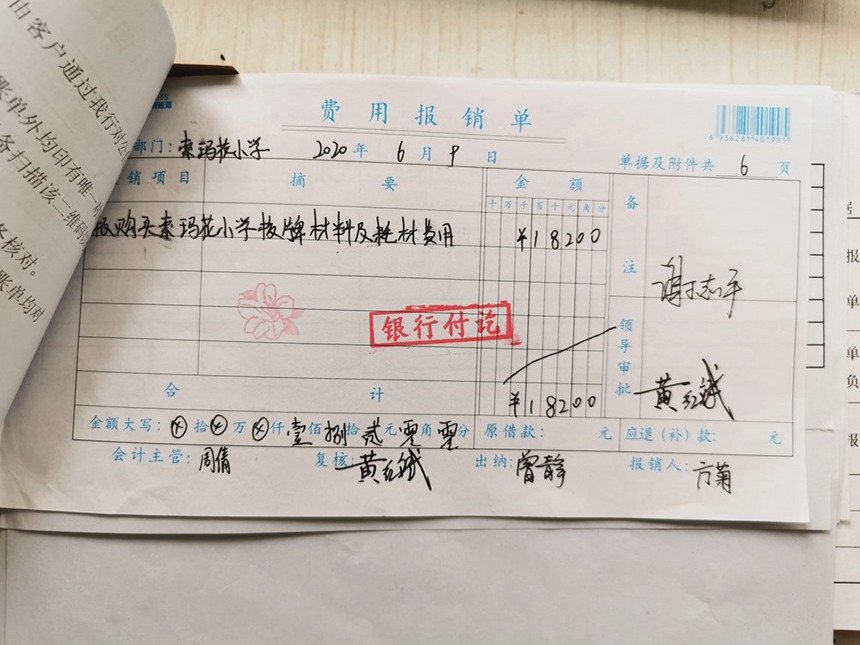 由客户通过我行对公
账单外均印有唯一
条扫描该二维码
核对。
账单均对
费用报销单
6 936281 401905
部门：索玛花小学 2020年6月9日 单据及附件共 6 页
销项目 摘要 金额 备注
十万千百十元角分
报购买索玛花小学校牌材料及耗材费用 ¥18200
谢志平
银行付讫
领导审批 黄红斌
合计 ¥18200
金额大写：⊗拾⊗万⊗仟壹佰捌拾贰元零角零分 原借款： 元 应退（补）款： 元
会计主管：周倩 复核：黄红斌 出纳：曾静 报销人：方菊
报
单
单
负
报